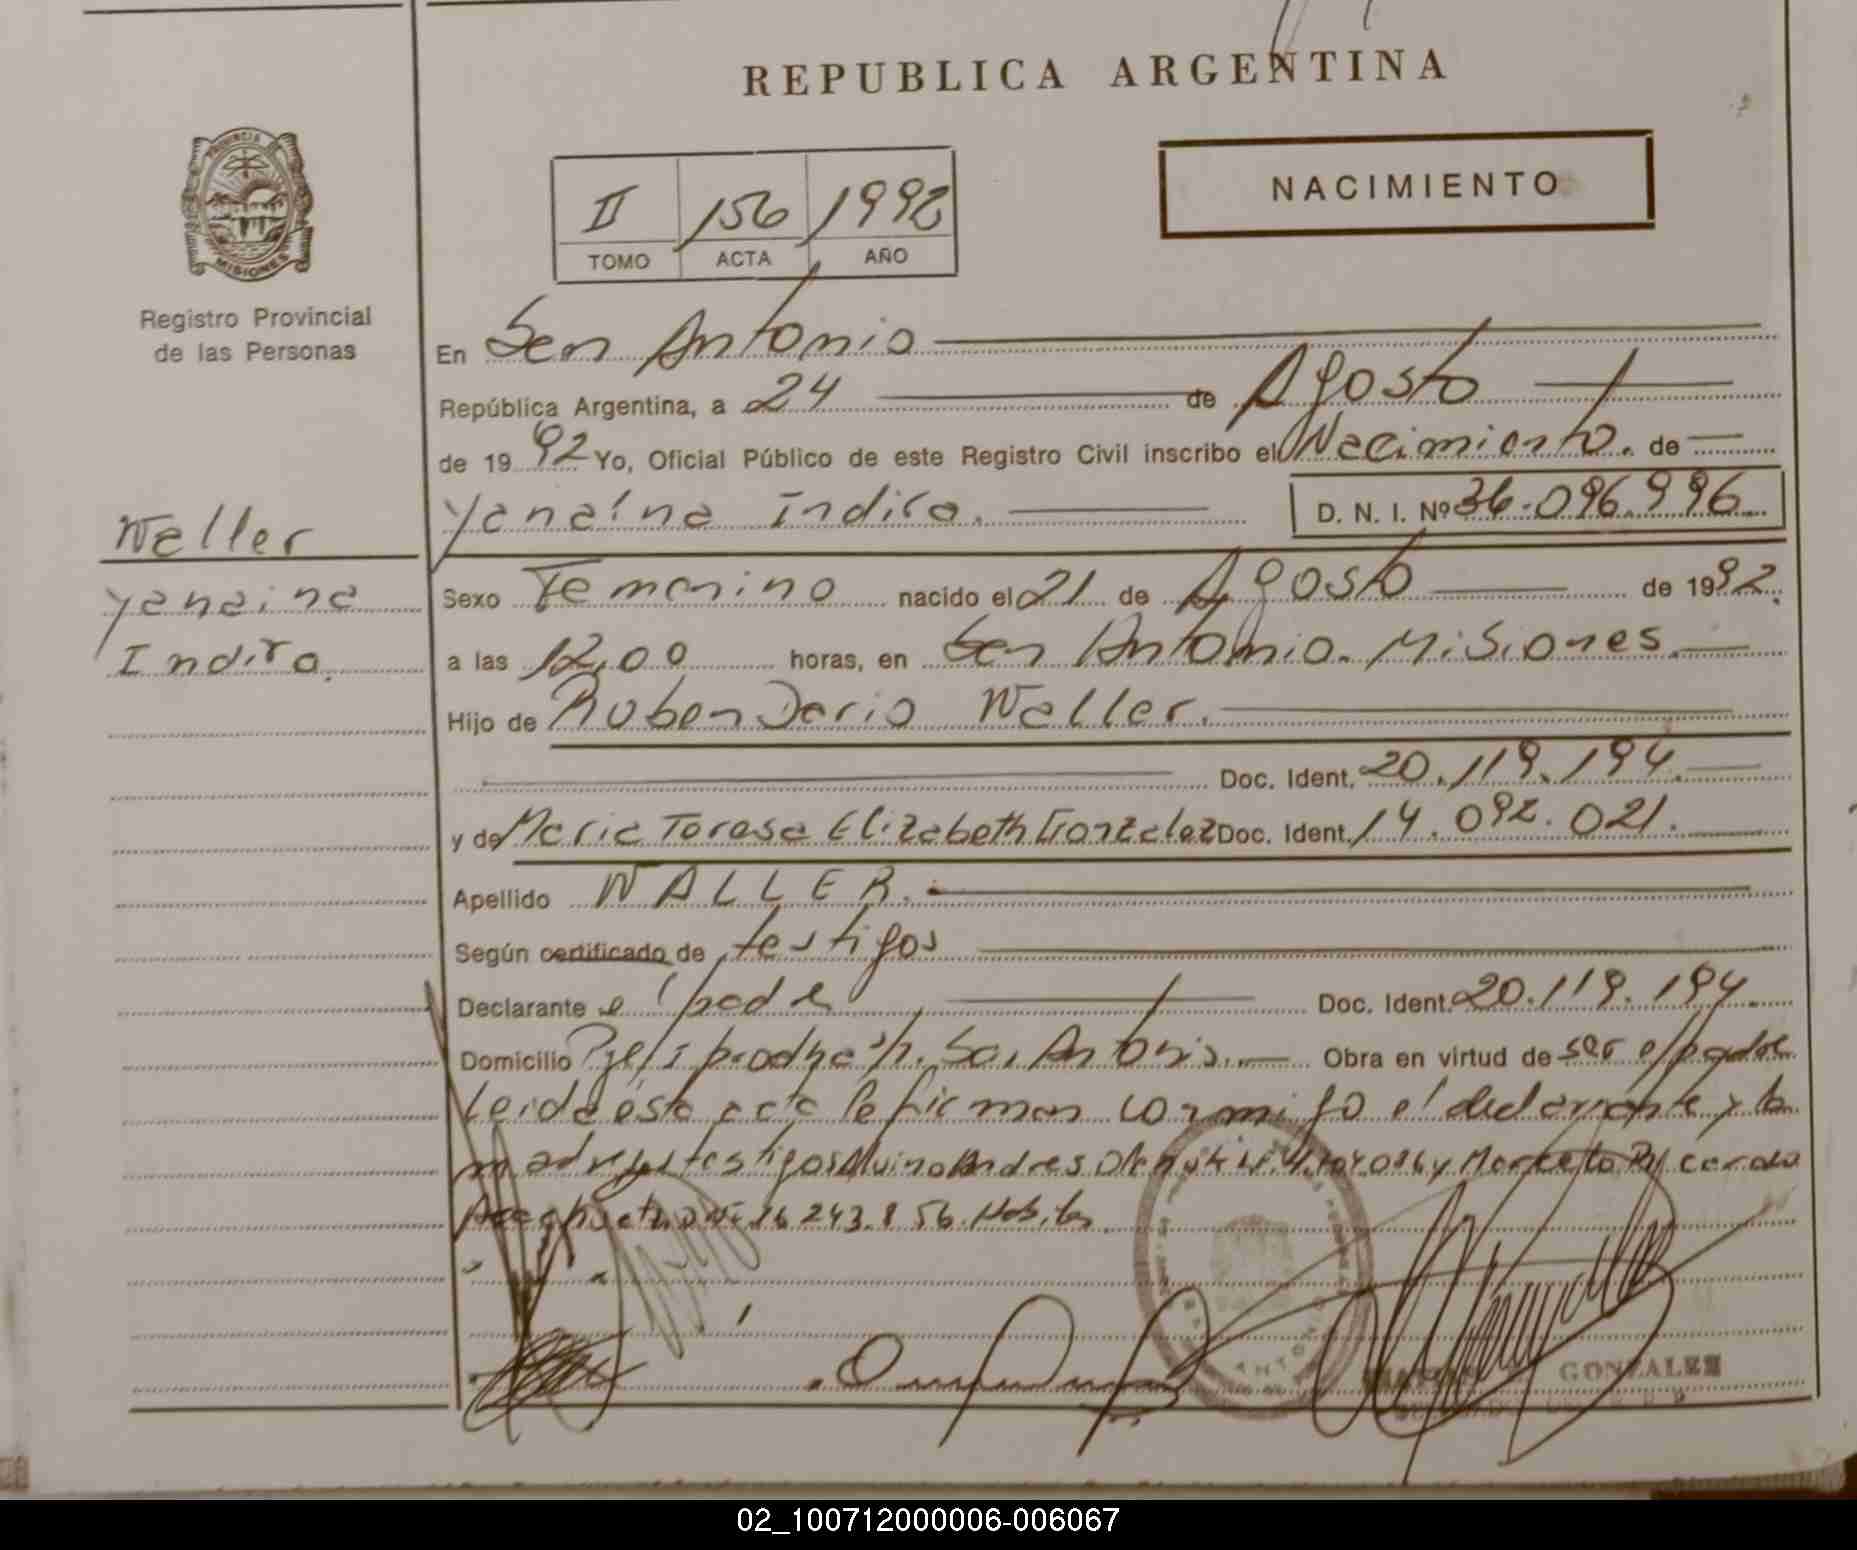 REPUBLICA ARGENTINA
NACIMIENTO
II 156 1992
TOMO ACTA AÑO
PROVINCIA DE
MISIONES
Registro Provincial
de las Personas
En San Antonio
República Argentina, a 24 de Agosto
de 1992 Yo, Oficial Público de este Registro Civil inscribo el Nacimiento. de
Yanaina Indira. D. N. I. Nº 36.096.996
Waller
Yanaina
Indira.
Sexo Femenino nacido el 21 de Agosto de 1992.
a las 12,00 horas, en San Antonio. Misiones.
Hijo de Ruben Dario Waller.
Doc. Ident. 20.119.194.
y de Maria Teresa Elizabeth Gonzalez Doc. Ident. 14.092.021.
Apellido WALLER.
Según certificado de testigos
Declarante el padre Doc. Ident. 20.119.194.
Domicilio San Antonio. Obra en virtud de ser el padre
Leida esta acta la firman conmigo el declarante y la
madre y los testigos Andres y Marcelo
16.243.856.
GONZALEZ
02_100712000006-006067